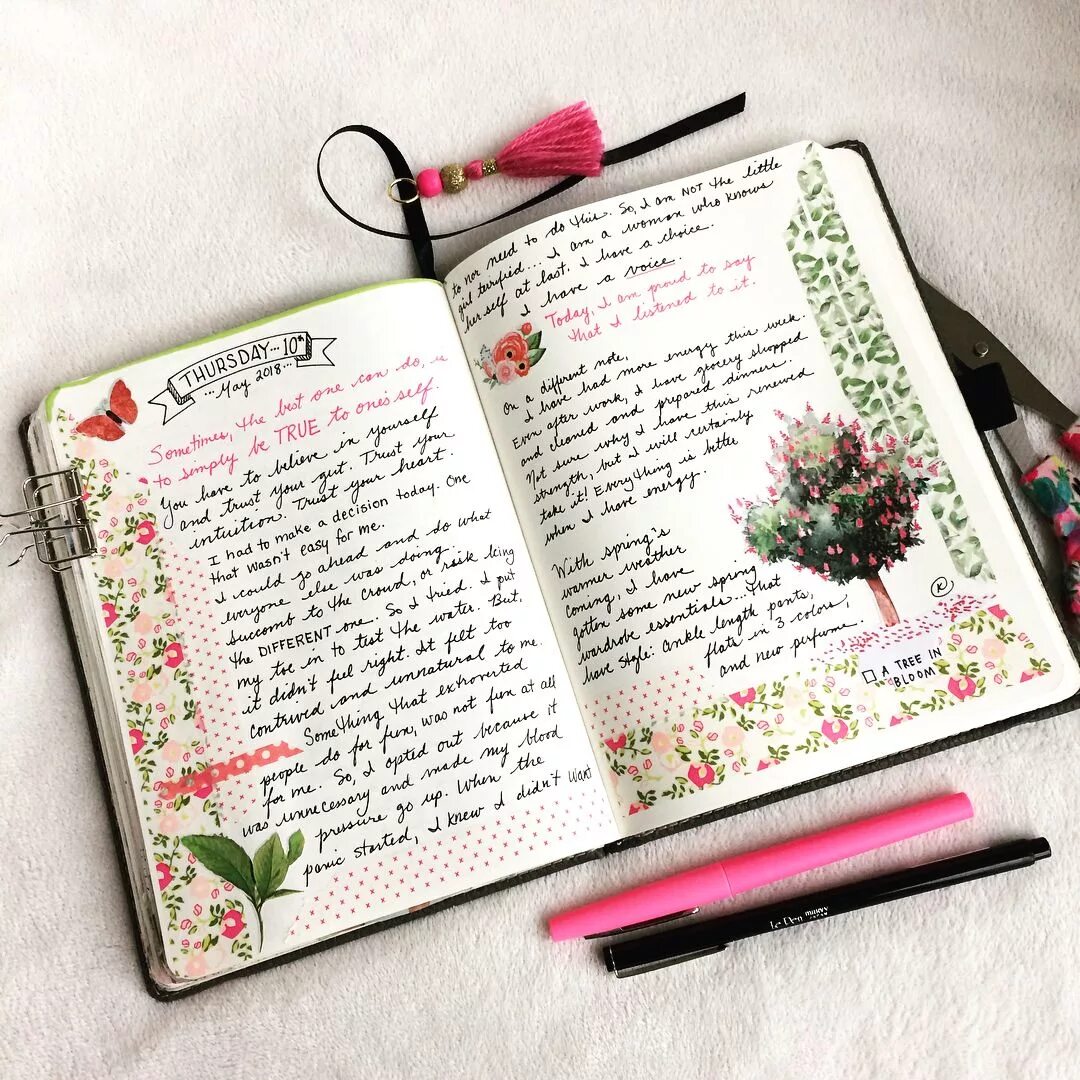 THURSDAY... 10th
...May 2018...
Sometimes, the best one can do, is
to simply be TRUE to one's self.
You have to believe in yourself
and trust your gut. Trust your
intuition. Trust your heart.
I had to make a decision
today. One
that wasn't easy for me.
I could go ahead and do what
everyone else was doing...
Succomb to the crowd, or risk being
the DIFFERENT one. So I tried. I put
my toe in to test the water. But,
it didn't feel right. It felt too
contrived and unnatural to me.
Something that extroverted
people do for fun, was not fun at all
for me. So, I opted out because it
was unnecessary and made my blood
pressure go up. When the
panic started, I knew I didn't want
to nor need to do this. So, I am NOT the little
girl terrified... I am a woman who knows
herself at last. I have a choice.
I have a voice.
Today, I am proud to say
that I listened to it.
On a different note,
I have had more energy this week.
Even after work, I have grocery shopped
and cleaned and prepared dinner.
Not sure why I have this renewed
strength, but I will certainly
take it! Everything is better
when I have energy.
With spring's
warmer weather
coming, I have
gotten some new spring
wardrobe essentials... that
have style: ankle length pants,
flats in 3 colors,
and new perfume.
K
A TREE IN
BLOOM
Le Pen